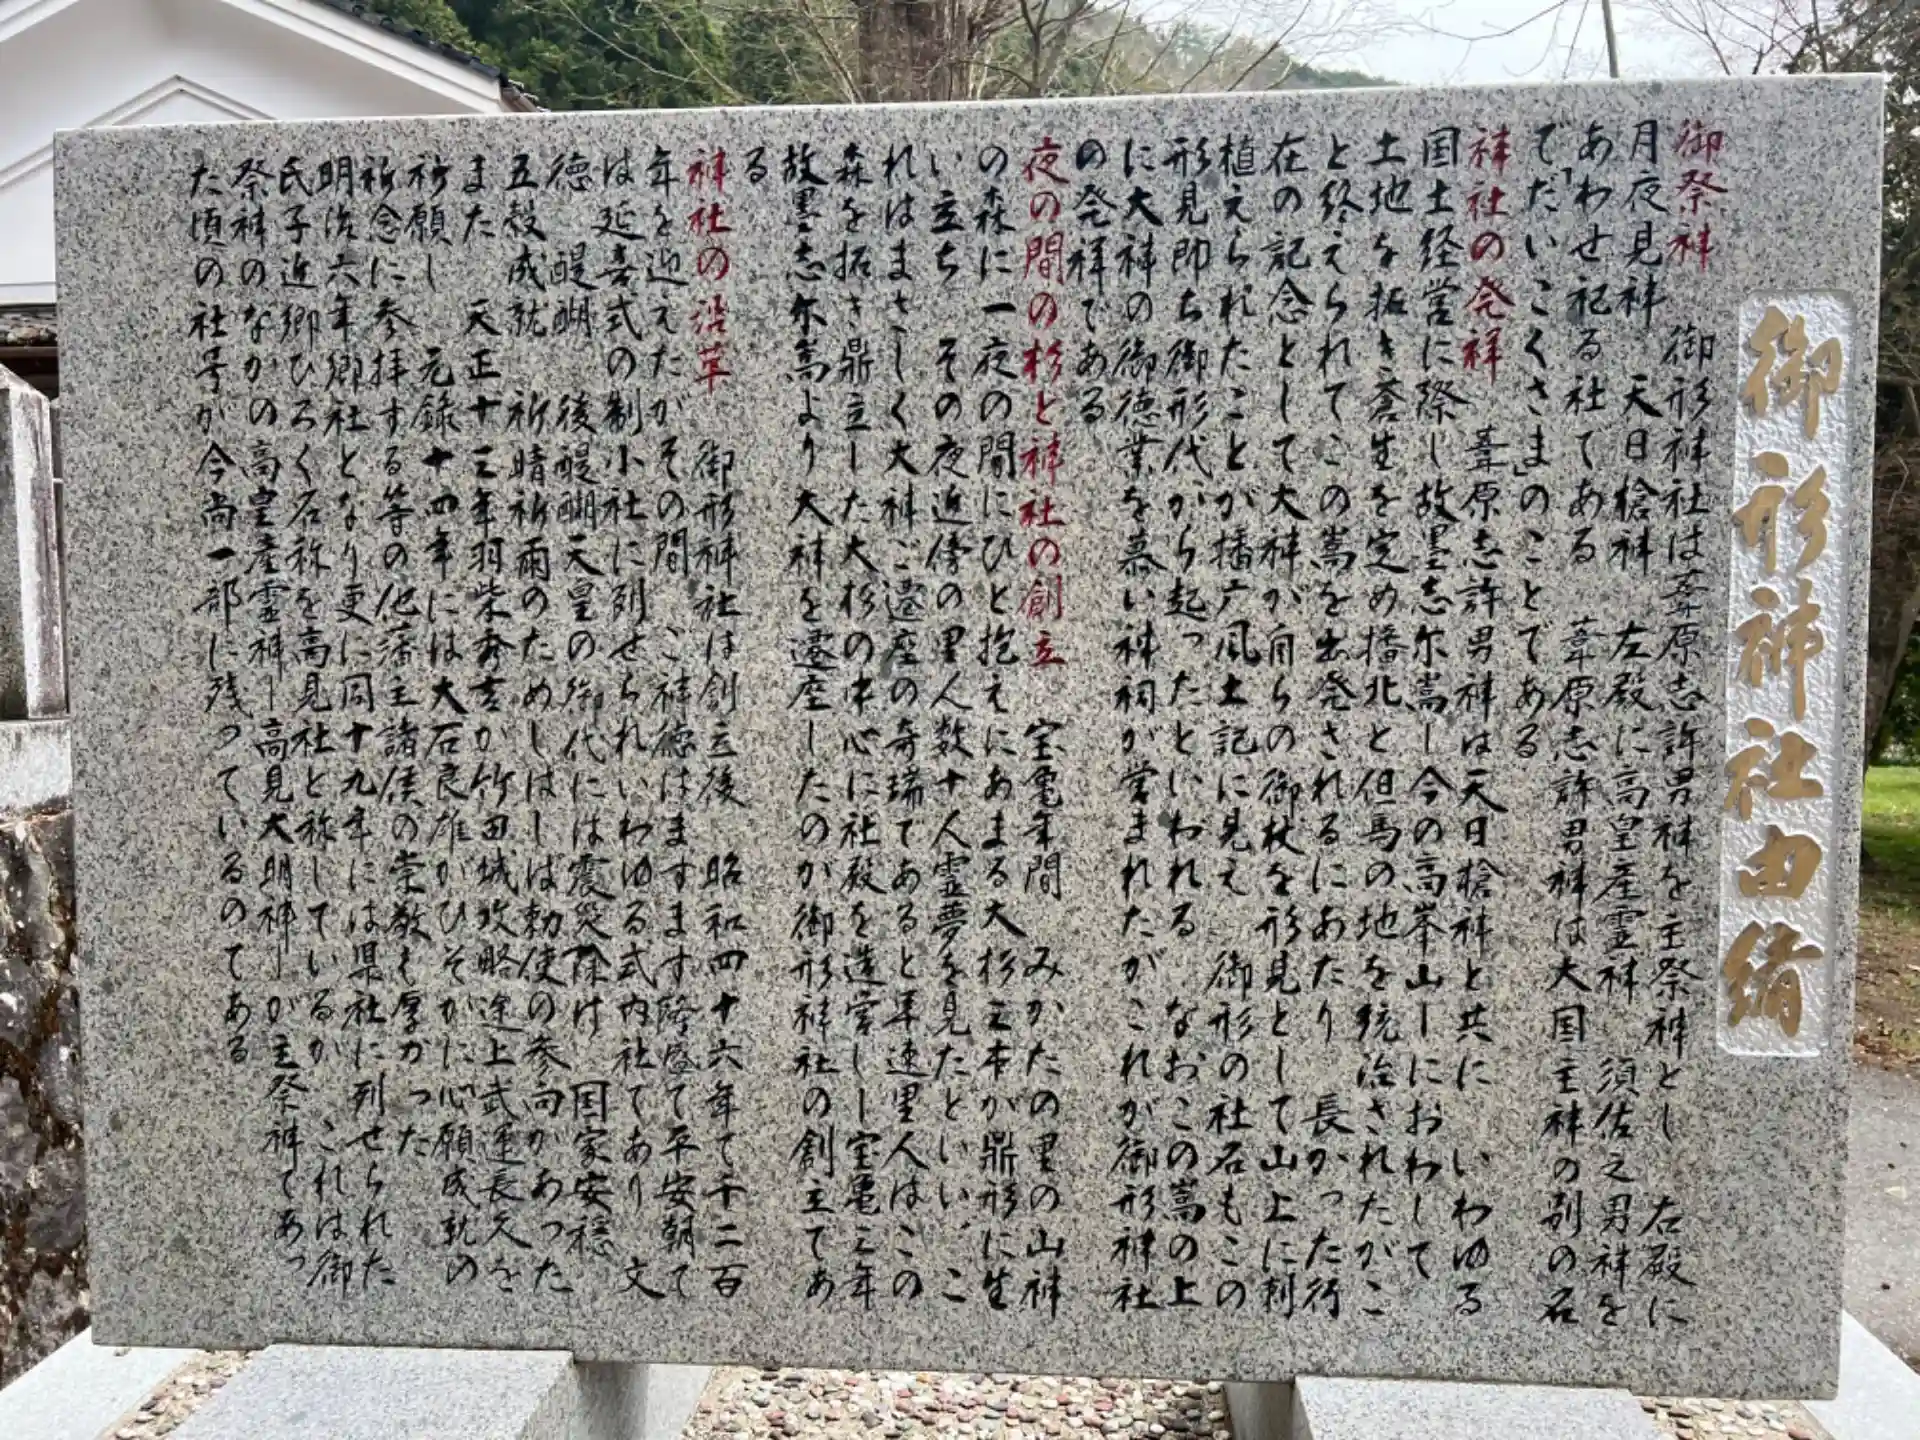 御形神社由緒
御祭神　御形神社は葦原志許男神を主祭神とし　右殿に
月夜見神　天日槍神　左殿に高皇産霊神　須佐之男神を
あわせ祀る社てある　葦原志許男神は大国主神の別の名
で「だいこくさま」のことてある
神社の発祥　葦原志許男神は天日槍神と共に　いわゆる
国土経営に際し故墨志尓嵩ー今の高峯山ーにおわして
土地を拓き蒼生を定め播北と但馬の地を統治されたがこ
と終えられてこの嵩を出発されるにあたり　長かった行
在の記念として大神が自らの御杖を形見として山上に刺
植えられたことが播广風土記に見え　御形の社名もこの
形見即ち御形代から起ったといわれる　なおこの嵩の上
に大神の御徳業を慕い神祠が営まれたがこれが御形神社
の発祥である
夜の間の杉と神社の創立　宝亀年間　みかたの里の山神
の森に一夜の間にひと抱えにあまる大杉三本が鼎形に生
い立ち　その夜近傍の里人数十人霊夢を見たといい、こ
れはまさしく大神ご遷座の奇瑞てあると早速里人はこの
森を拓き鼎立した大杉の中心に社殿を造営しー宝亀三年
故墨志尓嵩より大神を遷座したのが御形神社の創立てあ
る
神社の沿革　御形神社は創立後　昭和四十六年て千二百
年を迎えたが　その間　ご神徳はますます隆盛て平安朝て
は延喜式の制小社に列せられいわゆる式内社てあり　文
徳　醍醐　後醍醐天皇の御代には震災除け　国家安穏
五穀成就　祈晴祈雨のためしはしば勅使の参向があった
また　天正十三年羽柴秀吉が竹田城攻略途上武運長久を
祈願し　元録十四年には大石良雄がひそかに心願成就の
祈念に参拝する等の他藩主諸侯の崇敬も厚かった
明治六年郷社となり更に同十九年には県社に列せられた
氏子近郷ひろく名称を高見社と称しているが　これは御
祭神のなかの高皇産霊神ー高見大明神ーが主祭神てあっ
た頃の社号が今尚一部に残っているのてある